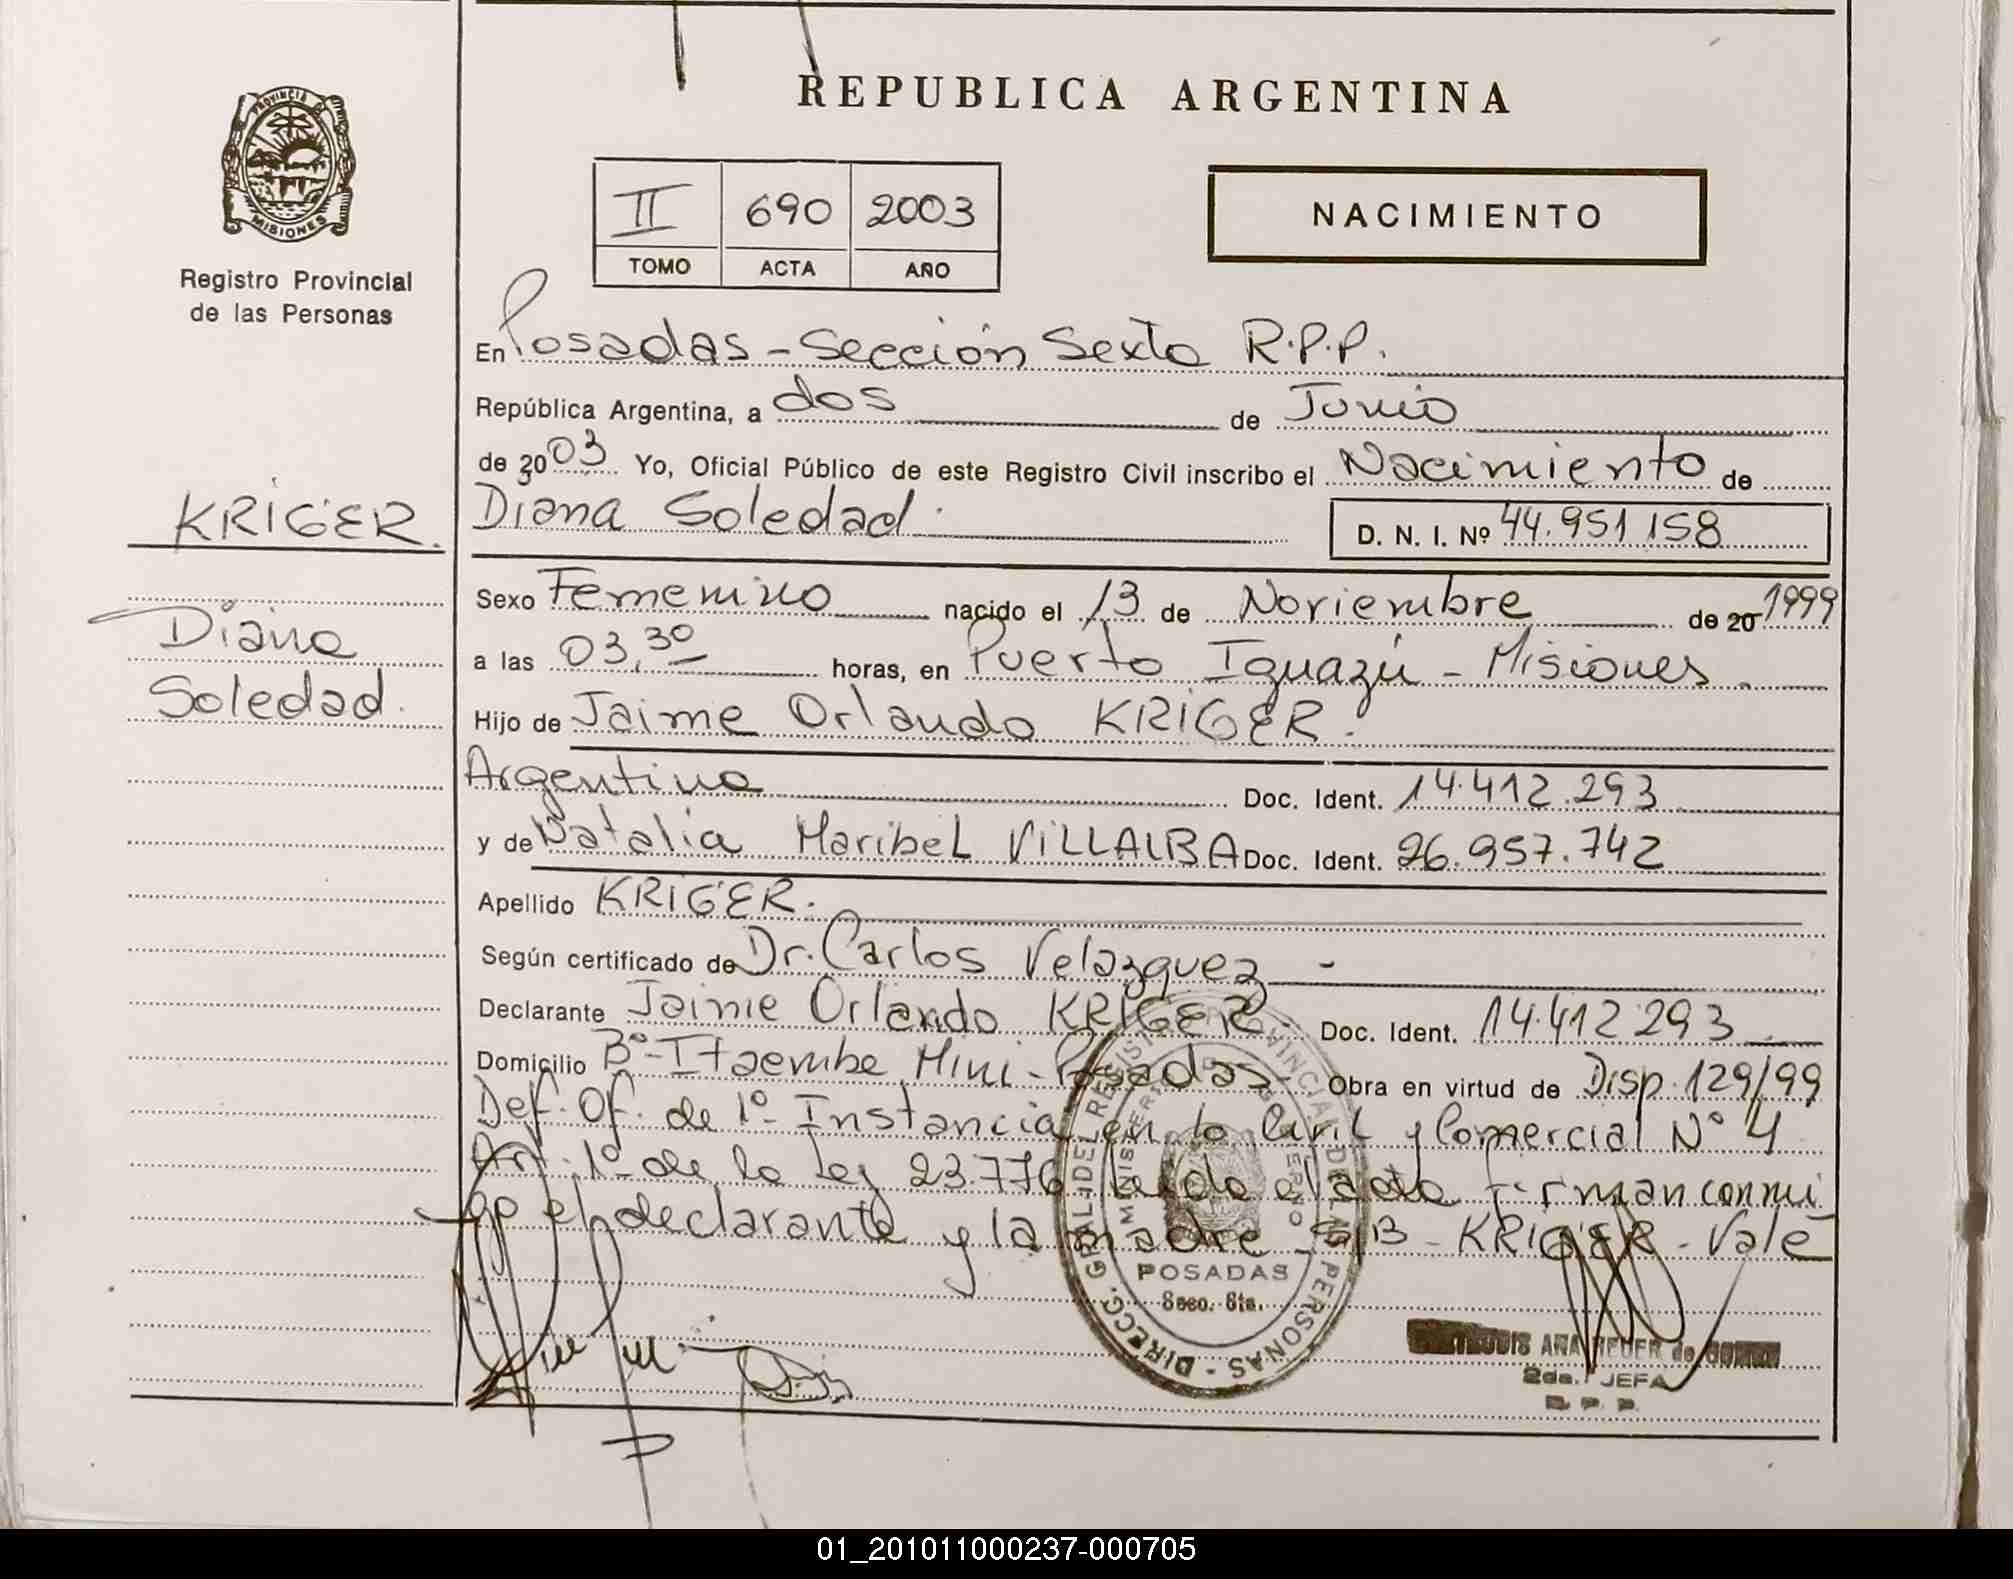 REPUBLICA ARGENTINA
PROVINCIA D
MISIONES
Registro Provincial
de las Personas
II 690 2003
TOMO ACTA AÑO
NACIMIENTO
En Posadas - Sección Sexta R.P.P.
República Argentina, a dos de Junio
de 2003 Yo, Oficial Público de este Registro Civil inscribo el Nacimiento de
KRIGER.
Diana Soledad.
D. N. I. Nº 44.951.158
Sexo Femenino nacido el 13 de Noviembre de 20 1999
Diana
a las 03,30 horas, en Puerto Iguazú - Misiones.
Soledad.
Hijo de Jaime Orlando KRIGER.
Argentina Doc. Ident. 14.412.293
y de Natalia Maribel VILLALBA Doc. Ident. 26.957.742
Apellido KRIGER.
Según certificado de Dr. Carlos Velazquez -
Declarante Jaime Orlando KRIGER. Doc. Ident. 14.412.293
Domicilio Bº- Itaembe Mini - Posadas - Obra en virtud de Disp. 129/99
Def. Of. de 1º- Instancia en lo Civil y Comercial Nº 4
Art. 1º- de la Ley 23.776 leida el acta firman conmi
go el declarante y la madre S/B - KRIGER - Vale
DIRECC. GRAL DEL REGIST PROVINCIAL DE LAS PERSONAS
MINISTERIO DE GOBIERNO
POSADAS
Secc. 6ta.
ANA REUER de
2da. JEFA
R. P. P.
01_201011000237-000705